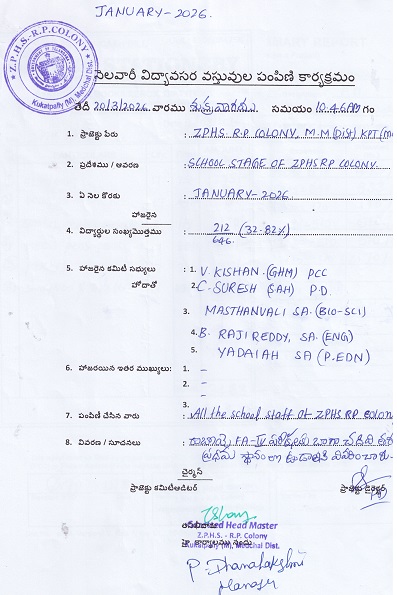 JANUARY-2026.
Z.P.H.S.-R.P.COLONY
Kukatpally (M), Medchal Dist.
నెలవారీ విద్యావసర వస్తువుల పంపిణి కార్యక్రమం
తేదీ 20/3/2026 వారము శుక్రవారము సమయం 10.45AM గం
1. ప్రాజెక్టు పేరు : ZPHS R.P COLONY, M.M(Dist) KPT(M
2. ప్రదేశము / ఆవరణ : SCHOOL STAGE OF ZPHS R.P COLONY.
3. ఏ నెల కొరకు : JANUARY-2026
హాజరైన
4. విద్యార్థుల సంఖ్య/మొత్తము : 212/646. (32.82%)
5. హాజరైన కమిటి సభ్యులు : 1. V. KISHAN. (GHM) PCC
హోదాతో 2. C. SURESH (SAH) P.D.
3. MASTHANVALI SA. (BIO-SCI)
4. B. RAJI REDDY, SA. (ENG)
5. YADAIAH SA (P.EDN)
6. హాజరయిన ఇతర ముఖ్యులు: 1. -
2. -
3.
7. పంపిణి చేసిన వారు : All the school staff of ZPHS RP Colon
8. వివరణ / సూచనలు : FA-IV బాగా
చైర్మన్
ప్రాజెక్టు కమిటి ఆడిటర్ ప్రాజెక్టు డైరెక్టర్
Head Master
Z.P.H.S. - R.P. Colony
Kukatpally (M), Medchal Dist.
P. Dhanalakshmi
Manager